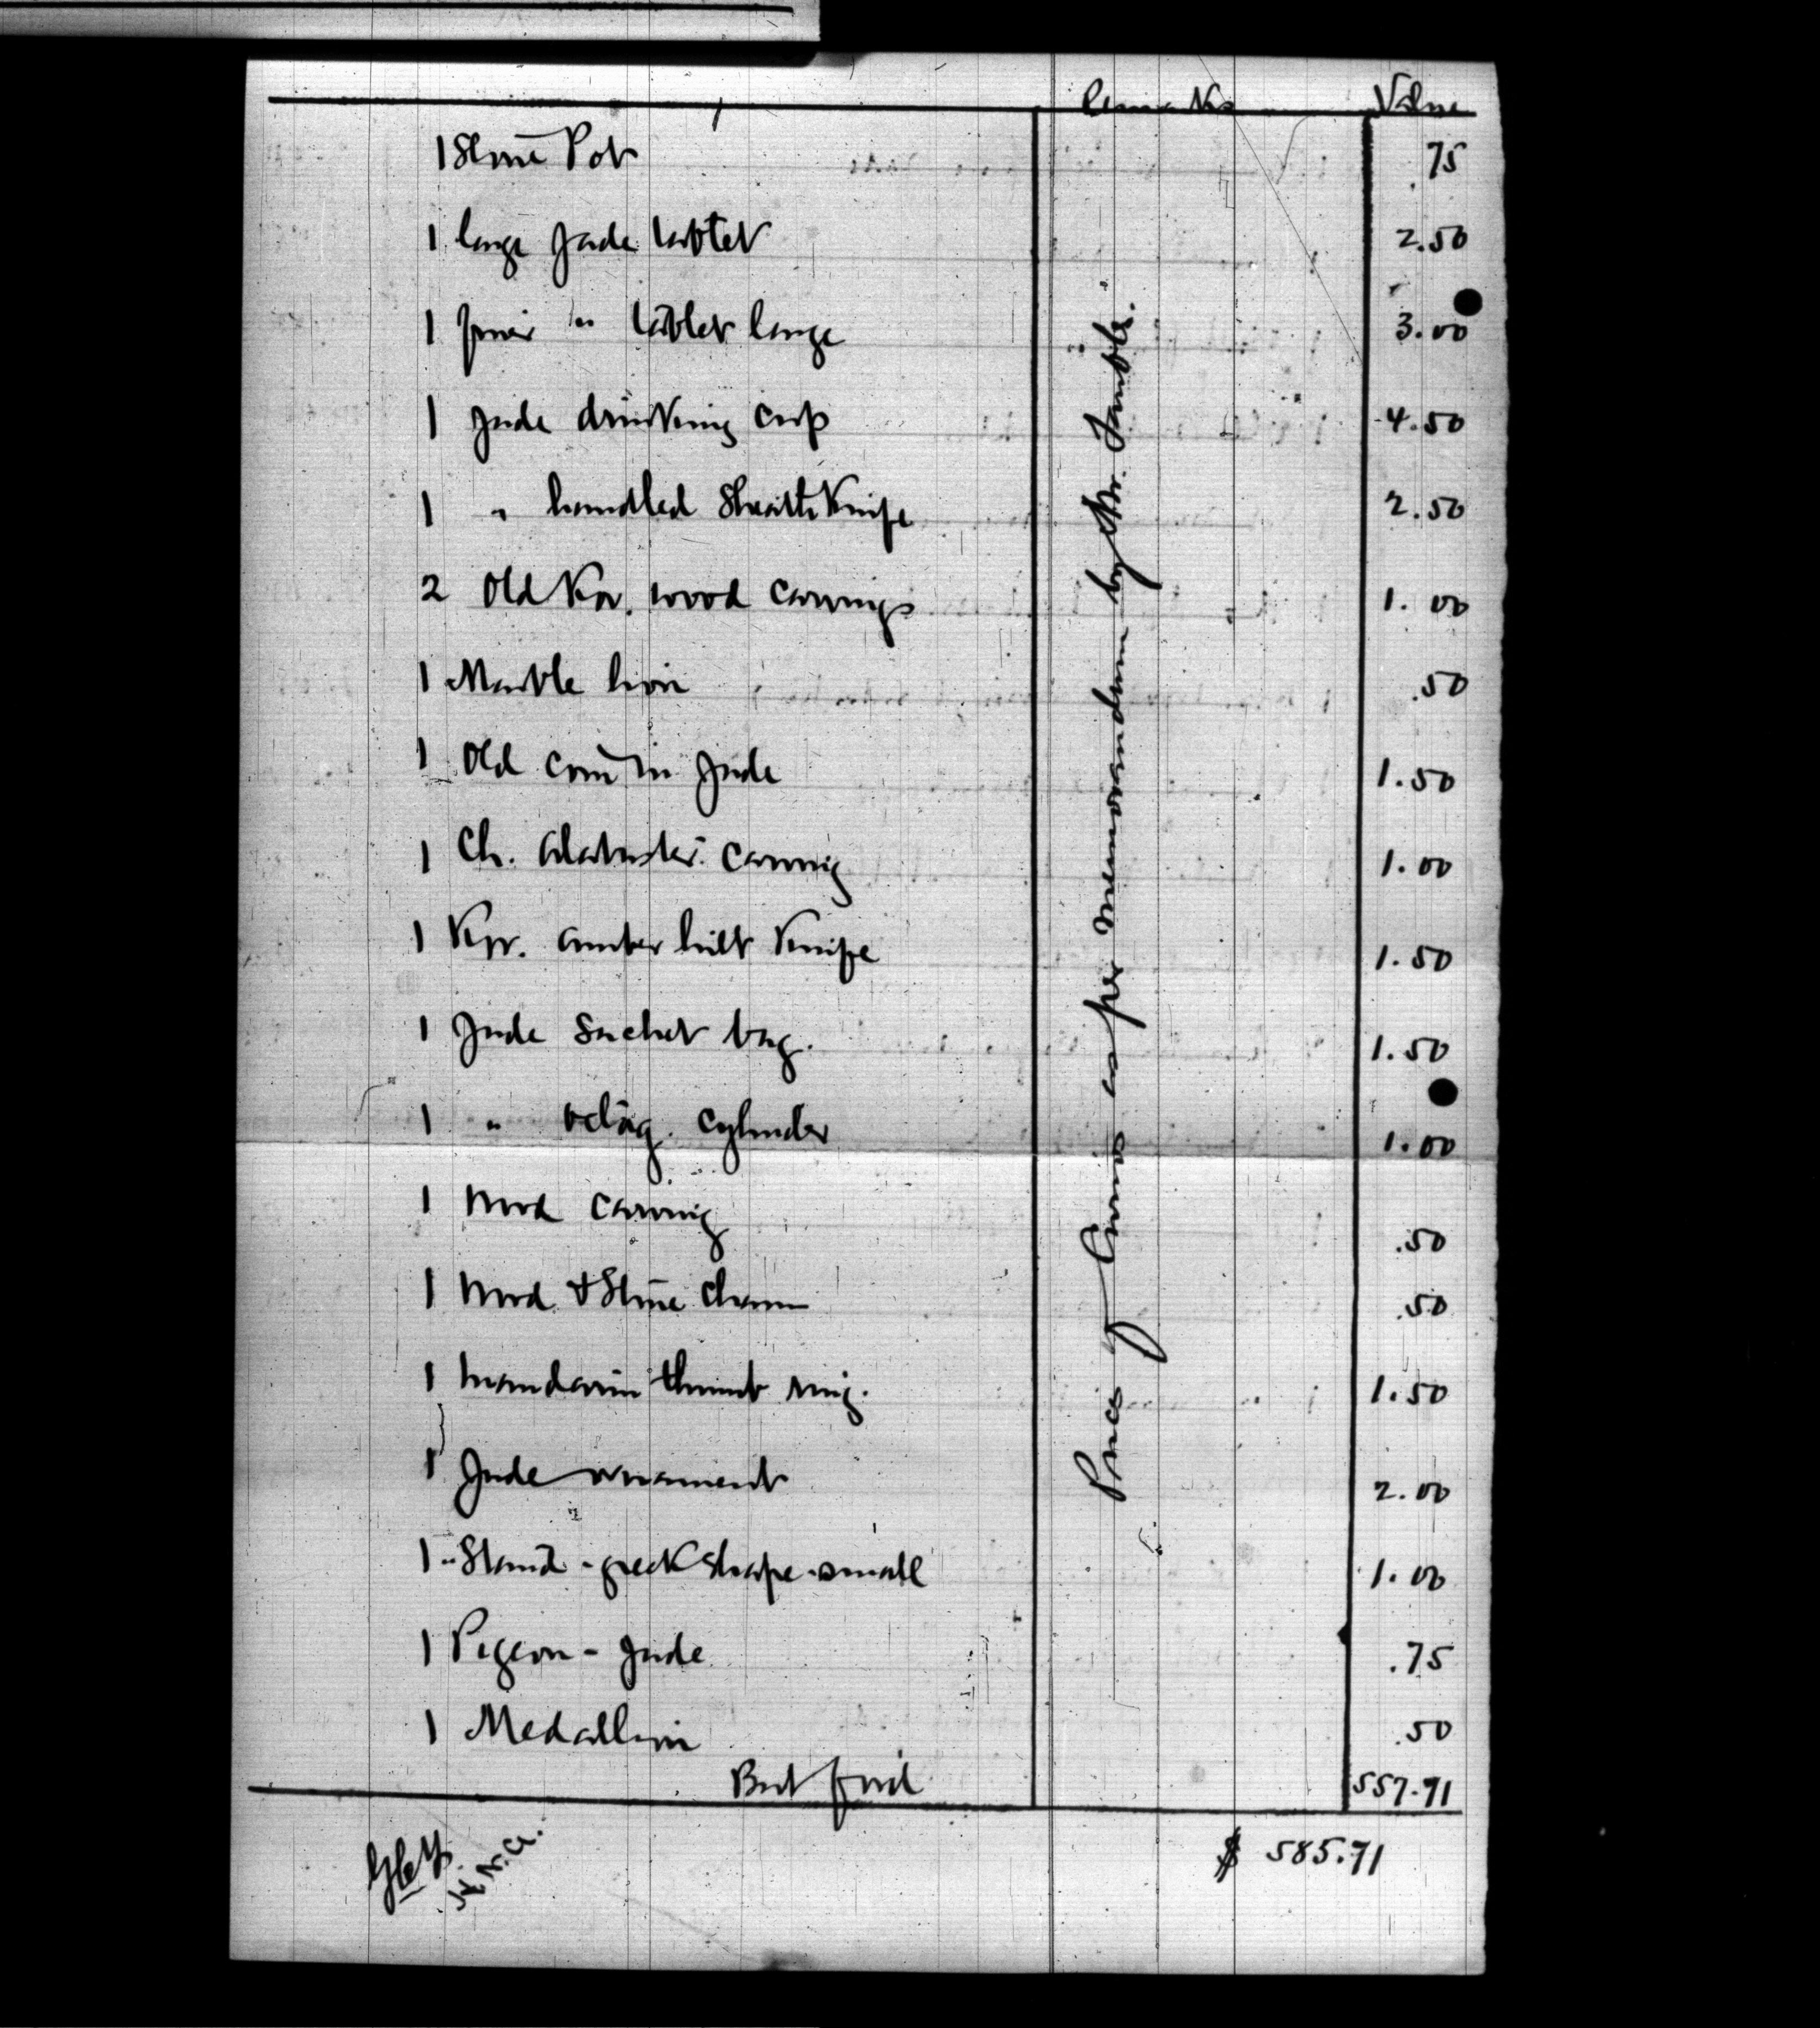 Remarks Value
1 Stone Pot 75
1 large Jade tablet 2.50
1 finer " tablet large 3.00
1 Jade drinking cup 4.50
1 " handled Sheath Knife 2.50
2 Old Kor. wood carvings 1.00
1 Marble lion .50
1 Old coin in Jade 1.50
1 Ch. Alabaster carving 1.00
1 Kor. amber hilt Knife 1.50
1 Jade Sachet bag. 1.50
1 " octag. cylinder 1.00
1 Wood carving .50
1 Wood & Stone charm .50
1 Mandarin thumb ring. 1.50
1 Jade ornament 2.00
1 " Stand - greek shape - small 1.00
1 Pigeon - Jade .75
1 Medallion .50
Brt ford 557.71
$ 585.71
Price of Curios as per memorandum by Mr.